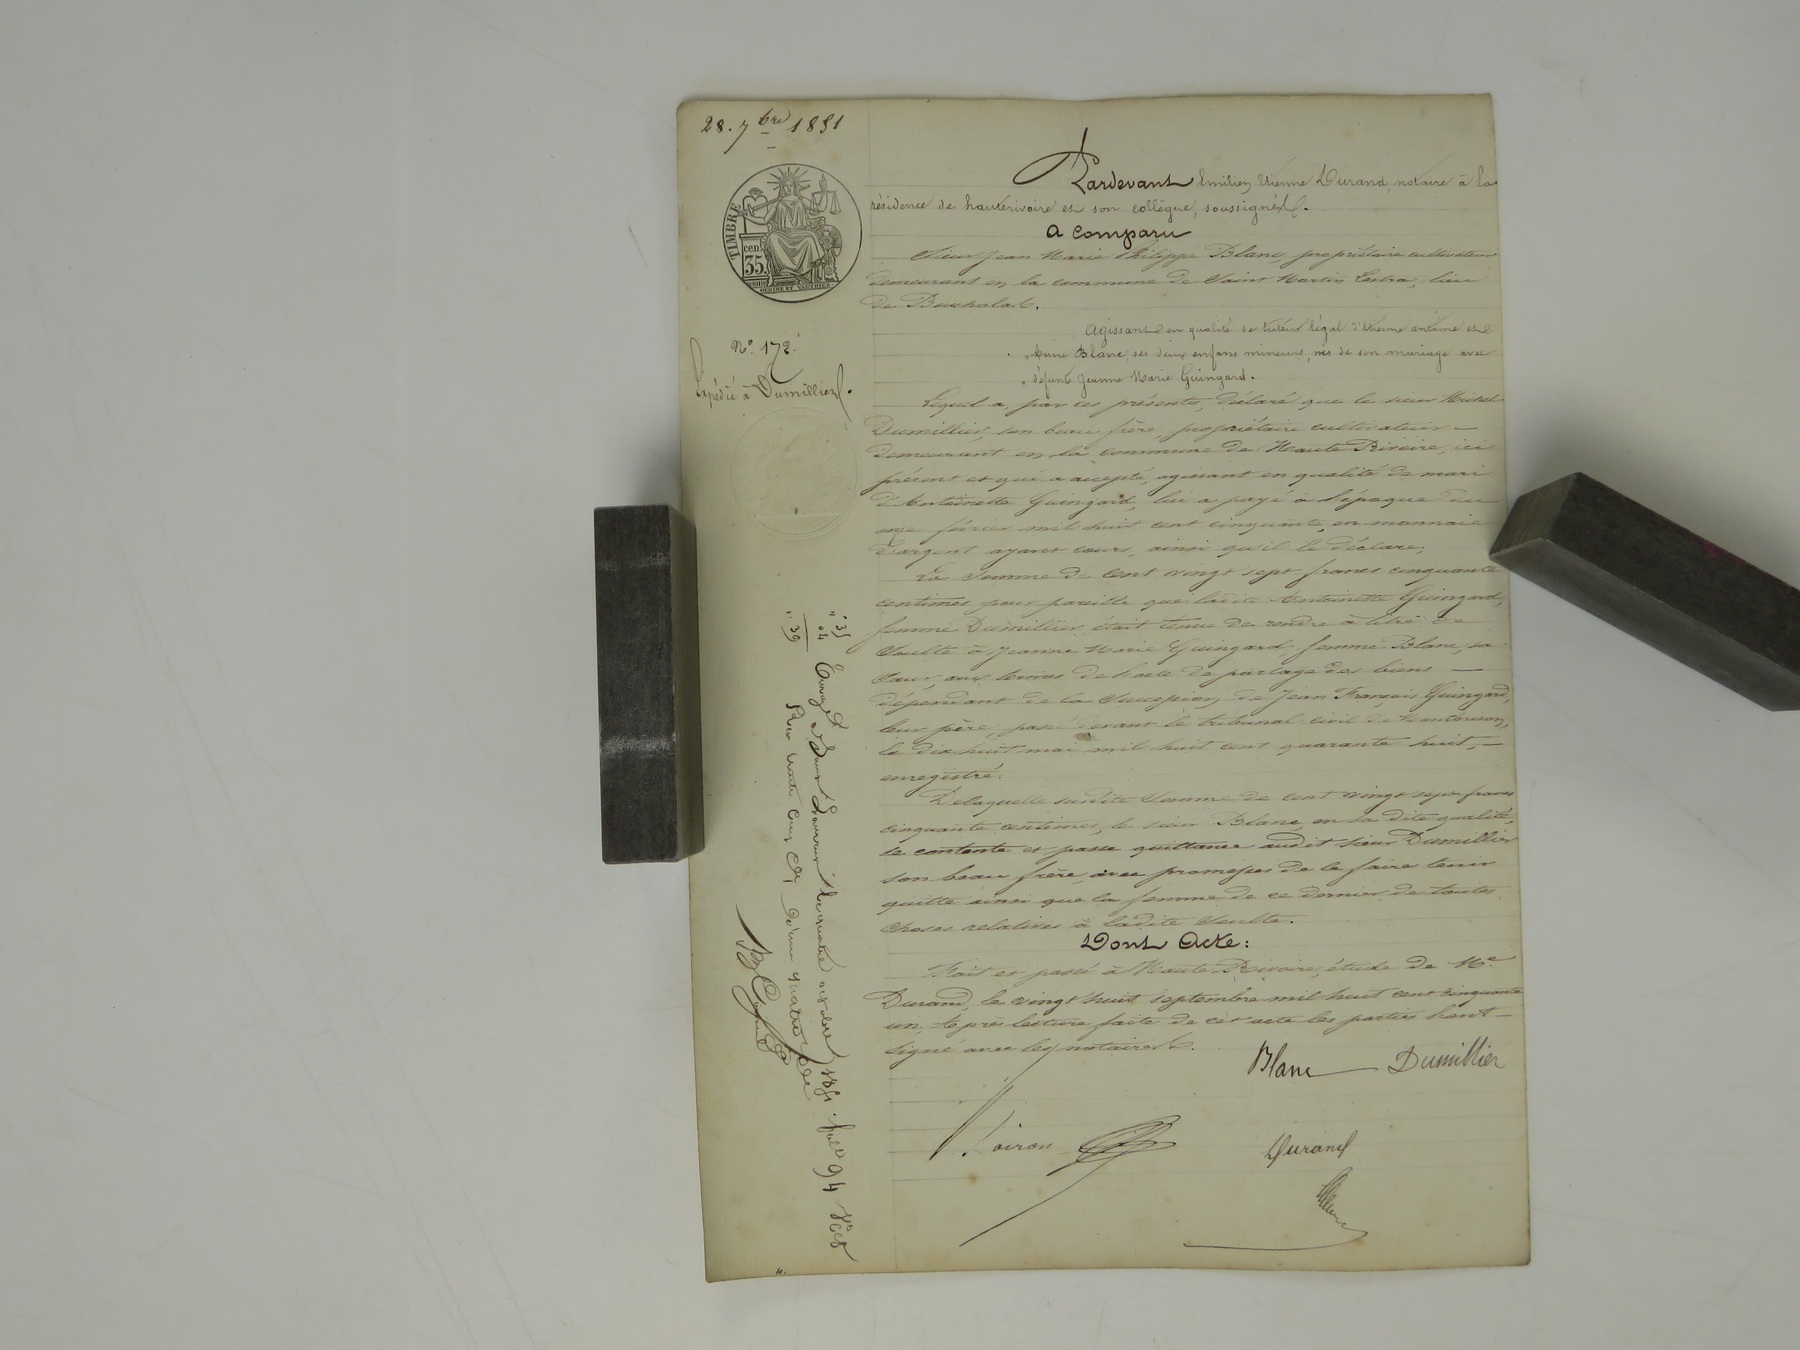 28. 7bre 1851
TIMBRE
cen.
35.
N° 172.
Expédié à Dumillier.
Pardevant Emilien Etienne Durand, notaire à la
résidence de hauterivoire et son collégue, soussignés.
A Comparu
Sieur Jean Marie Philippe Blanc, propriétaire cultivateur
demeurant en la commune de Saint Martin Lestra, lieu
de
Agissant en qualité de tuteur légal d'Etienne antoine et
Blanc, ses deux enfans mineurs, nés de son mariage avec
défunte Jeanne Marie Guingard.
Lequel a, par ces présentes, déclaré que le sieur Michel
Dumillier, son beau frère, propriétaire cultivateur
demeurant en la commune de Haute Rivoire, ici
présent et qui a accepté, agissant en qualité de mari
d'Antoinette Guingard, lui a payé à l'époque du
onze février mil huit cent cinquante, en monnaie
d'argent ayant cours, ainsi qu'il le déclare,
La Somme de Cent vingt sept francs cinquante
centimes, pour pareille que ladite Antoinette Guingard,
femme Dumillier était tenue de rendre à titre de
Soulte à Jeanne Marie Guingard, femme Blanc, sa
Sœur, aux termes de l'acte de partage des biens
dépendant de la Succession de Jean François Guingard,
leur père, passé devant le tribunal civil de
le dix huit mai mil huit cent quarante huit,
enregistré.
De laquelle susdite Somme de cent vingt sept francs
cinquante centimes, le sieur Blanc, en sa dite qualité,
se contente et passe quittance audit sieur Dumillier
son beau frère, avec promesses de le faire tenir
quitte ainsi que la femme de ce dernier de toutes
choses relatives à ladite Soulte.
Dont Acte:
Fait et passé à Haute-Rivoire, étude de Me
Durand, le vingt huit septembre mil huit cent cinquante
un, Après lecture faite de cet acte les parties l'ont
signé avec les notaires.
Blanc Dumillier
Durand
1 35
04
1. 39
le quatre octobre 1851. folio 94